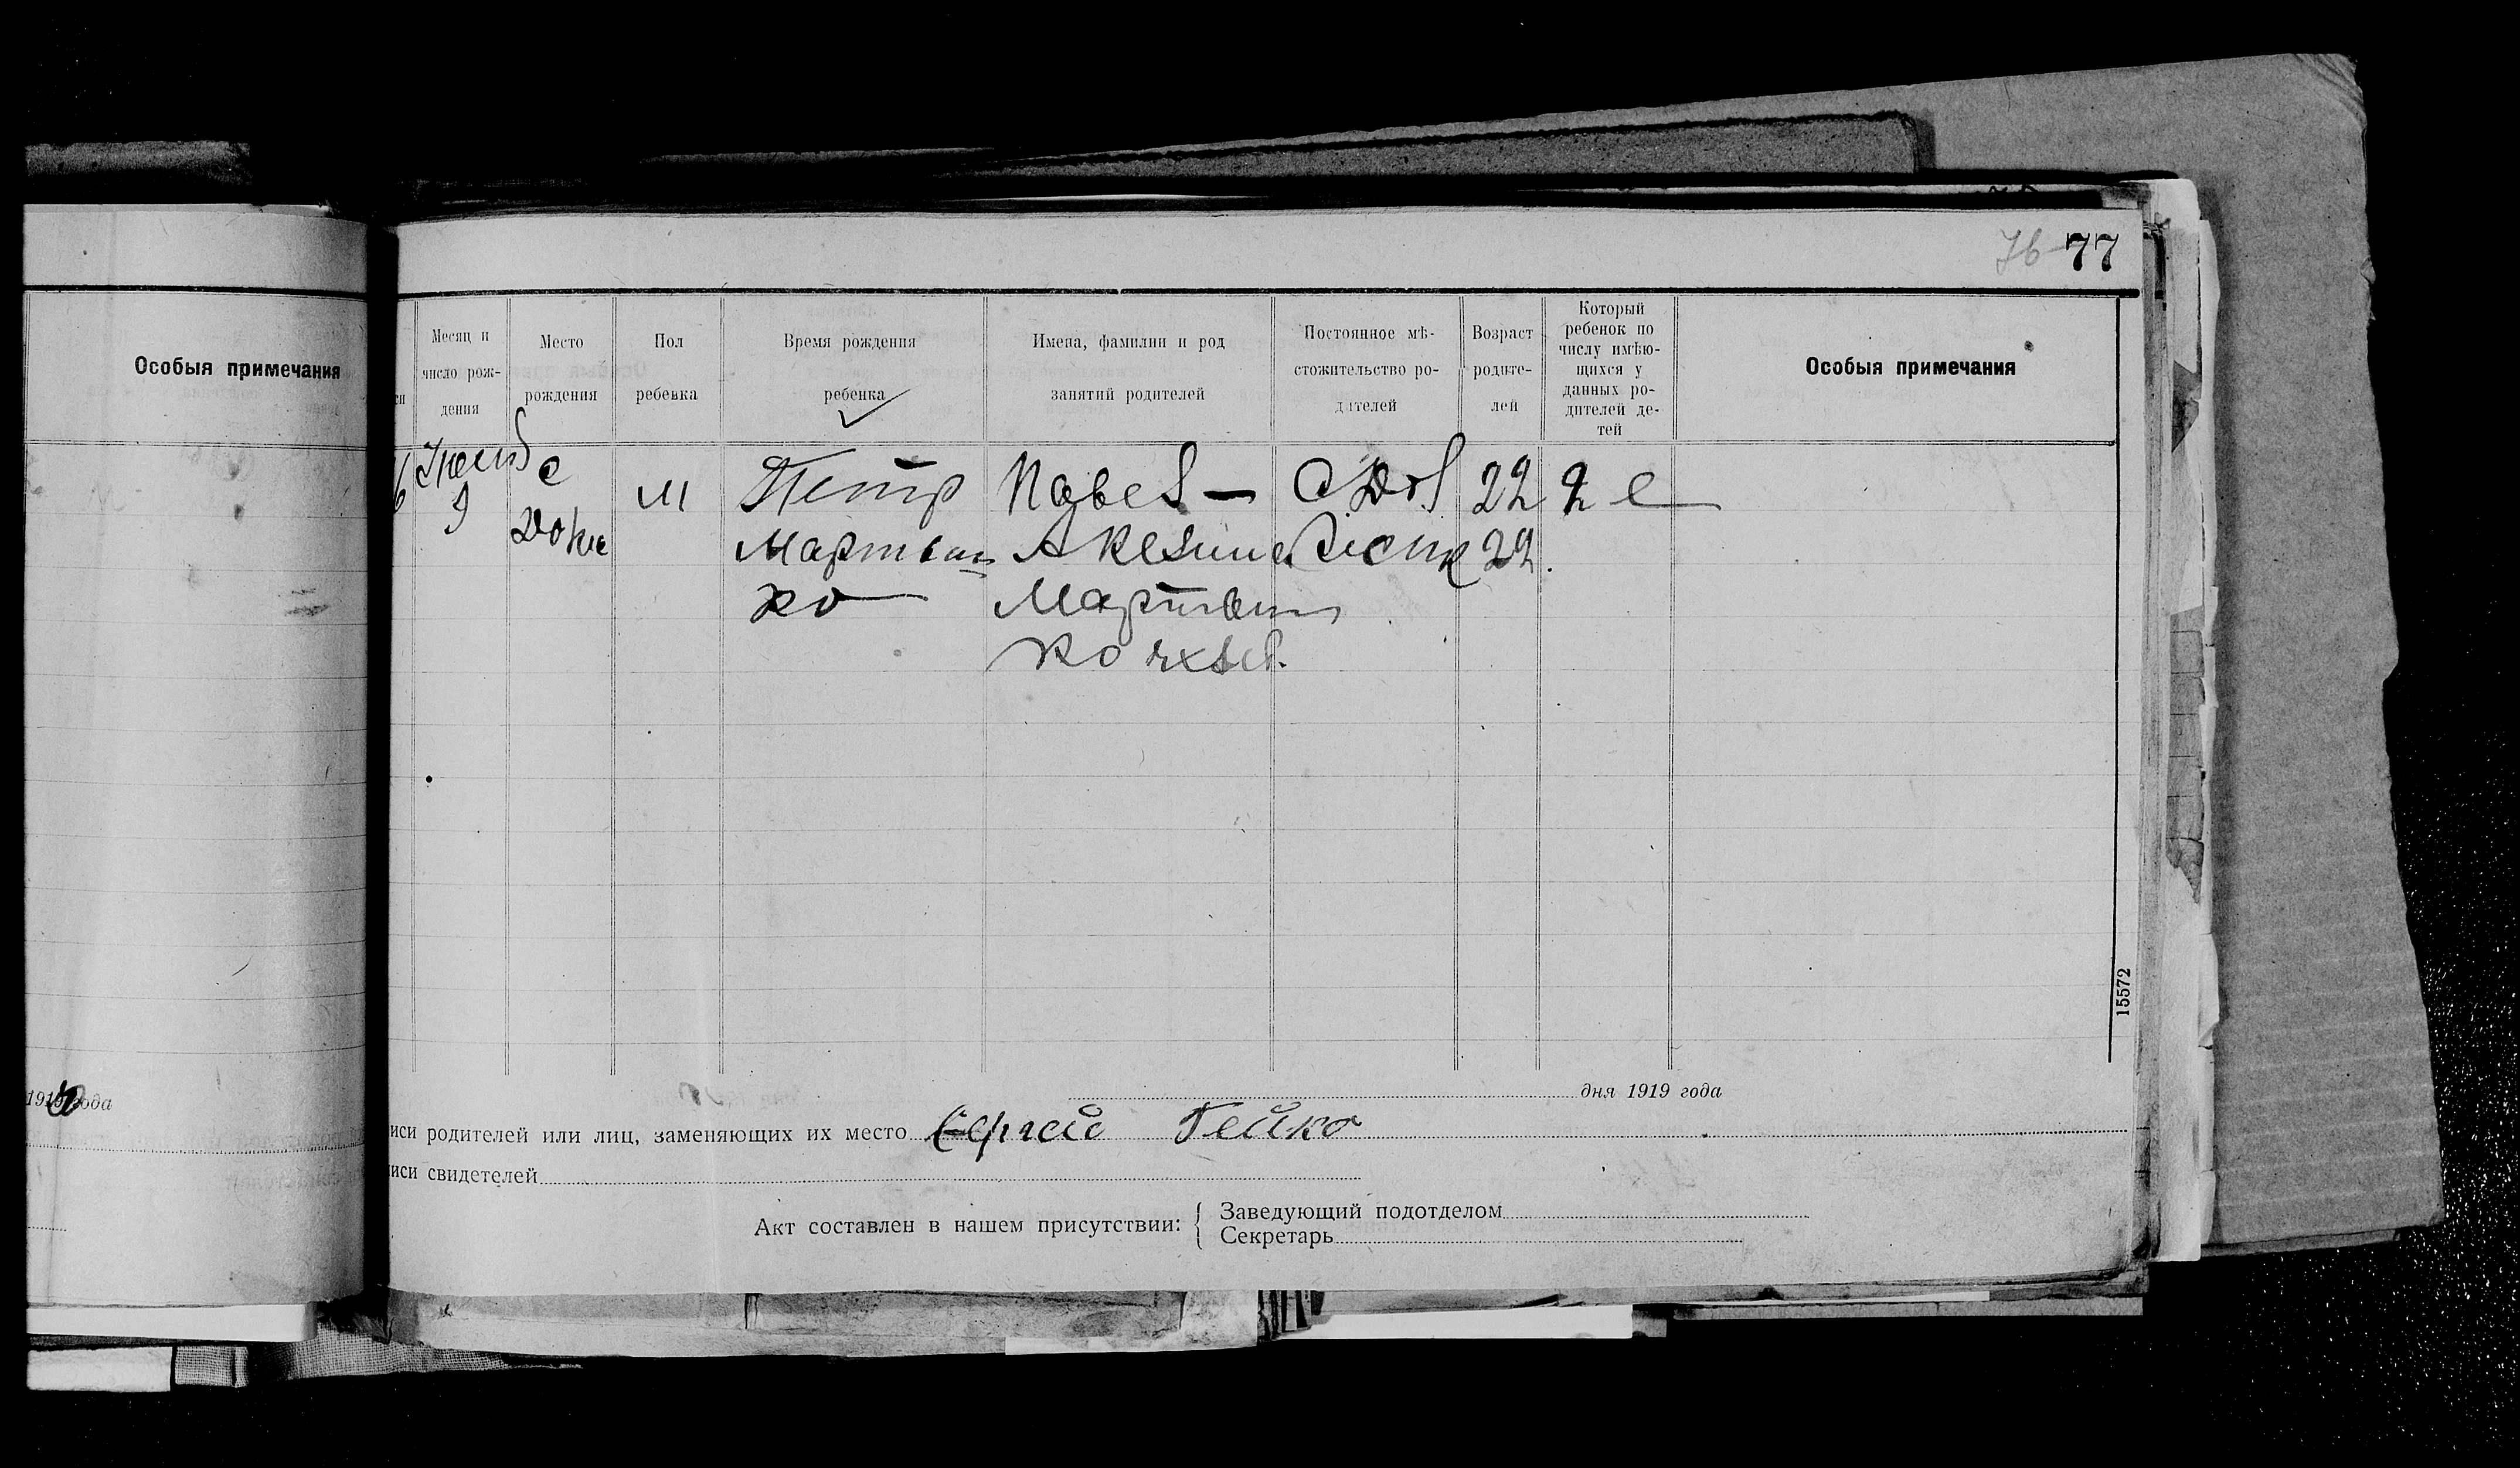 76 77
Особыя примечания
Месяц и число рождения
Место рождения
Пол ребенка
Время рождения ребенка
Имена, фамилии и род занятий родителей
Постоянное мѣстожительство родителей
Возраст родителей
Который ребенок по числу имѣющихся у данных родителей детей
Особыя примечания
9
с
м
Петр
Мартын
ко
Павел —
Акелина
Мартын
ко
22
22
2 е
15572
1919 года
дня 1919 года
иси родителей или лиц, заменяющих их место Сергей Гейко
иси свидетелей
Акт составлен в нашем присутствии:
Заведующий подотделом
Секретарь